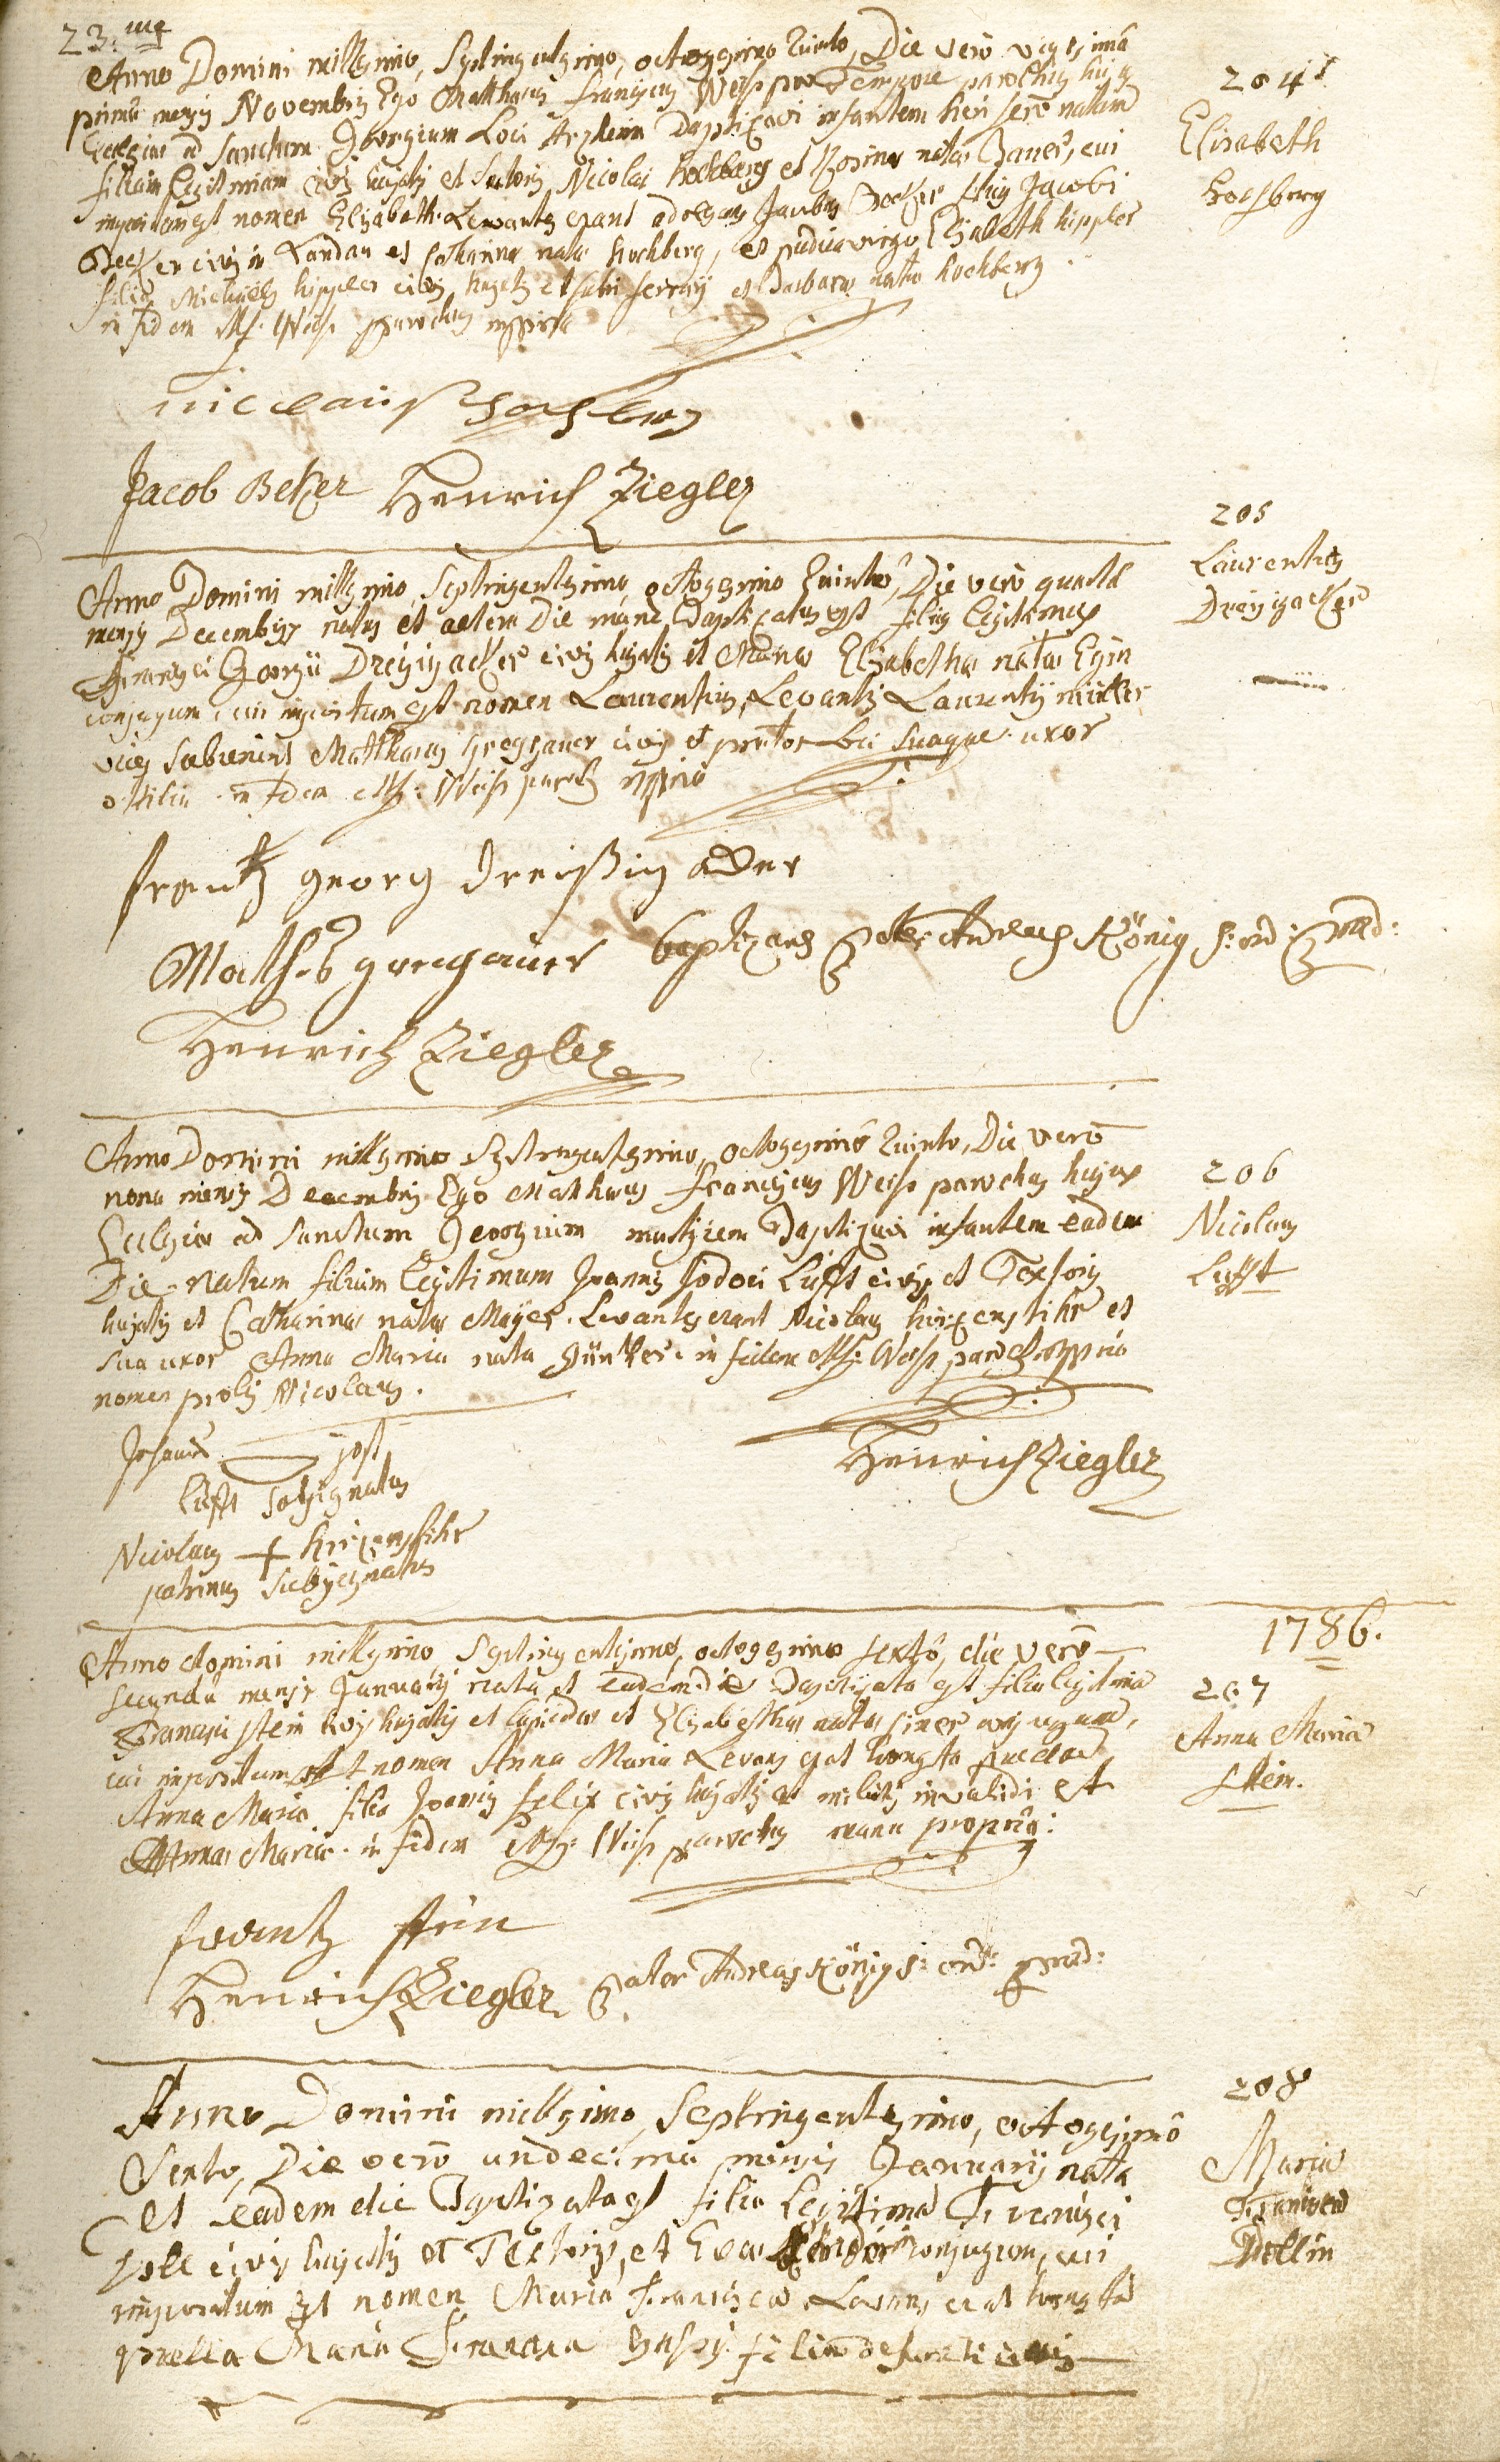 23.
Anno Domini millesimo, Septingentesimo, octogesimo Quinto, Die verô vigesimâ
primâ mensis Novembris Ego Matthaeus Franciscus Weis pro Tempore parochus hujus
Ecclesiae ad Sanctum Georgium Loci baptizavi infantem heri serô natam
filiam legitimam civis hujatis et Sutoris Nicolai Hochberg et Rosinae natae cui
impositum est nomen Elisabeth. Levantes erant adolescens Jacobus Becker filius Jacobi
Becker civis in Landau et Catharinae natae Hochberg, et pudica virgo Elisabeth hippler
filia Michaelis hippler civis hujatis et fabri ferrarij et Barbarae natae hochberg.
in fidem M: f: Weis parochus mppria
204
Elisabeth
Hochberg
niclaus hochberg
Jacob Beker Henrich Ziegler
Anno Domini millesimo, Septingentesimo, octogesimo Quinto, Die verô quarta
mensis Decembris natus et altera Die mane baptizatus est filius legitimus
Francisci Georgii Dreisigacker civis hujatis et Mariae Elisabethae natae Egin
conjugum, cui impositum est nomen Laurentius, Levantis Laurentij müller
vices subierunt Matthaeus gregganer civis et loci suaque uxor
ottilia in fidem M: f: Weis parochus mppriâ
205
Laurentius
Dreisigacker
frantz georg dreißig acker
Mathes gregauer baptizans Pater Andreas König s: ord: Praed:
Henrich Ziegler
Anno Domini millesimo Septingentesimo, octogesimô Quinto, Die verô
nona mensis Decembris Ego Matthaeus Franciscus Weis parochus hujus
Ecclesiae ad Sanctum Georgium martyrem Baptizavi infantem eadem
Die natum filium legitimum Joannis Jodoci Lufft civis et Textoris
hujatis et Catharinae natae Mayer. Levantes erant Nicolaus hirzenstihr et
sua uxor Anna Maria nata Jünker. in fidem M: f: Weis parochus mppriâ
nomen prolis Nicolaus.
206
Nicolaus
Lufft
Johanes jost
Lufft subsignatus
Henrich Ziegler
Nicolaus + hirzenstihr
patrinus subsignatus
1786.
Anno domini millesimo Septingentesimô, octogesimo sextô, die verô
secundâ mensis Januarij nata et eadem die baptizata est filia legitima
Francisci Stein civis hujatis et lapicidae et Elisabethae natae conjugum,
cui impositum est nomen Anna Maria Levans erat honesta puella
Anna Maria filia Joannis felix civis hujatis et militis invalidi et
Annae Mariae. in fidem M: f: Weis parochus manu propriâ:
207
Anna Maria
Stein.
frantz stein
Henrich Ziegler Pater Andreas König s: ord: Praed:
Anno Domini millesimo, Septingentesimo, octogesimô
Sexto, Die verô undecima mensis Januarij nata
et eadem die Baptizata est filia legitima Francisci
civis hujatis et Textoris, et Evae conjugum, cui
impositum est nomen Maria Francisca Levans erat honesta
puella Maria Francisca filia defuncti civis
208
Maria
Francisca